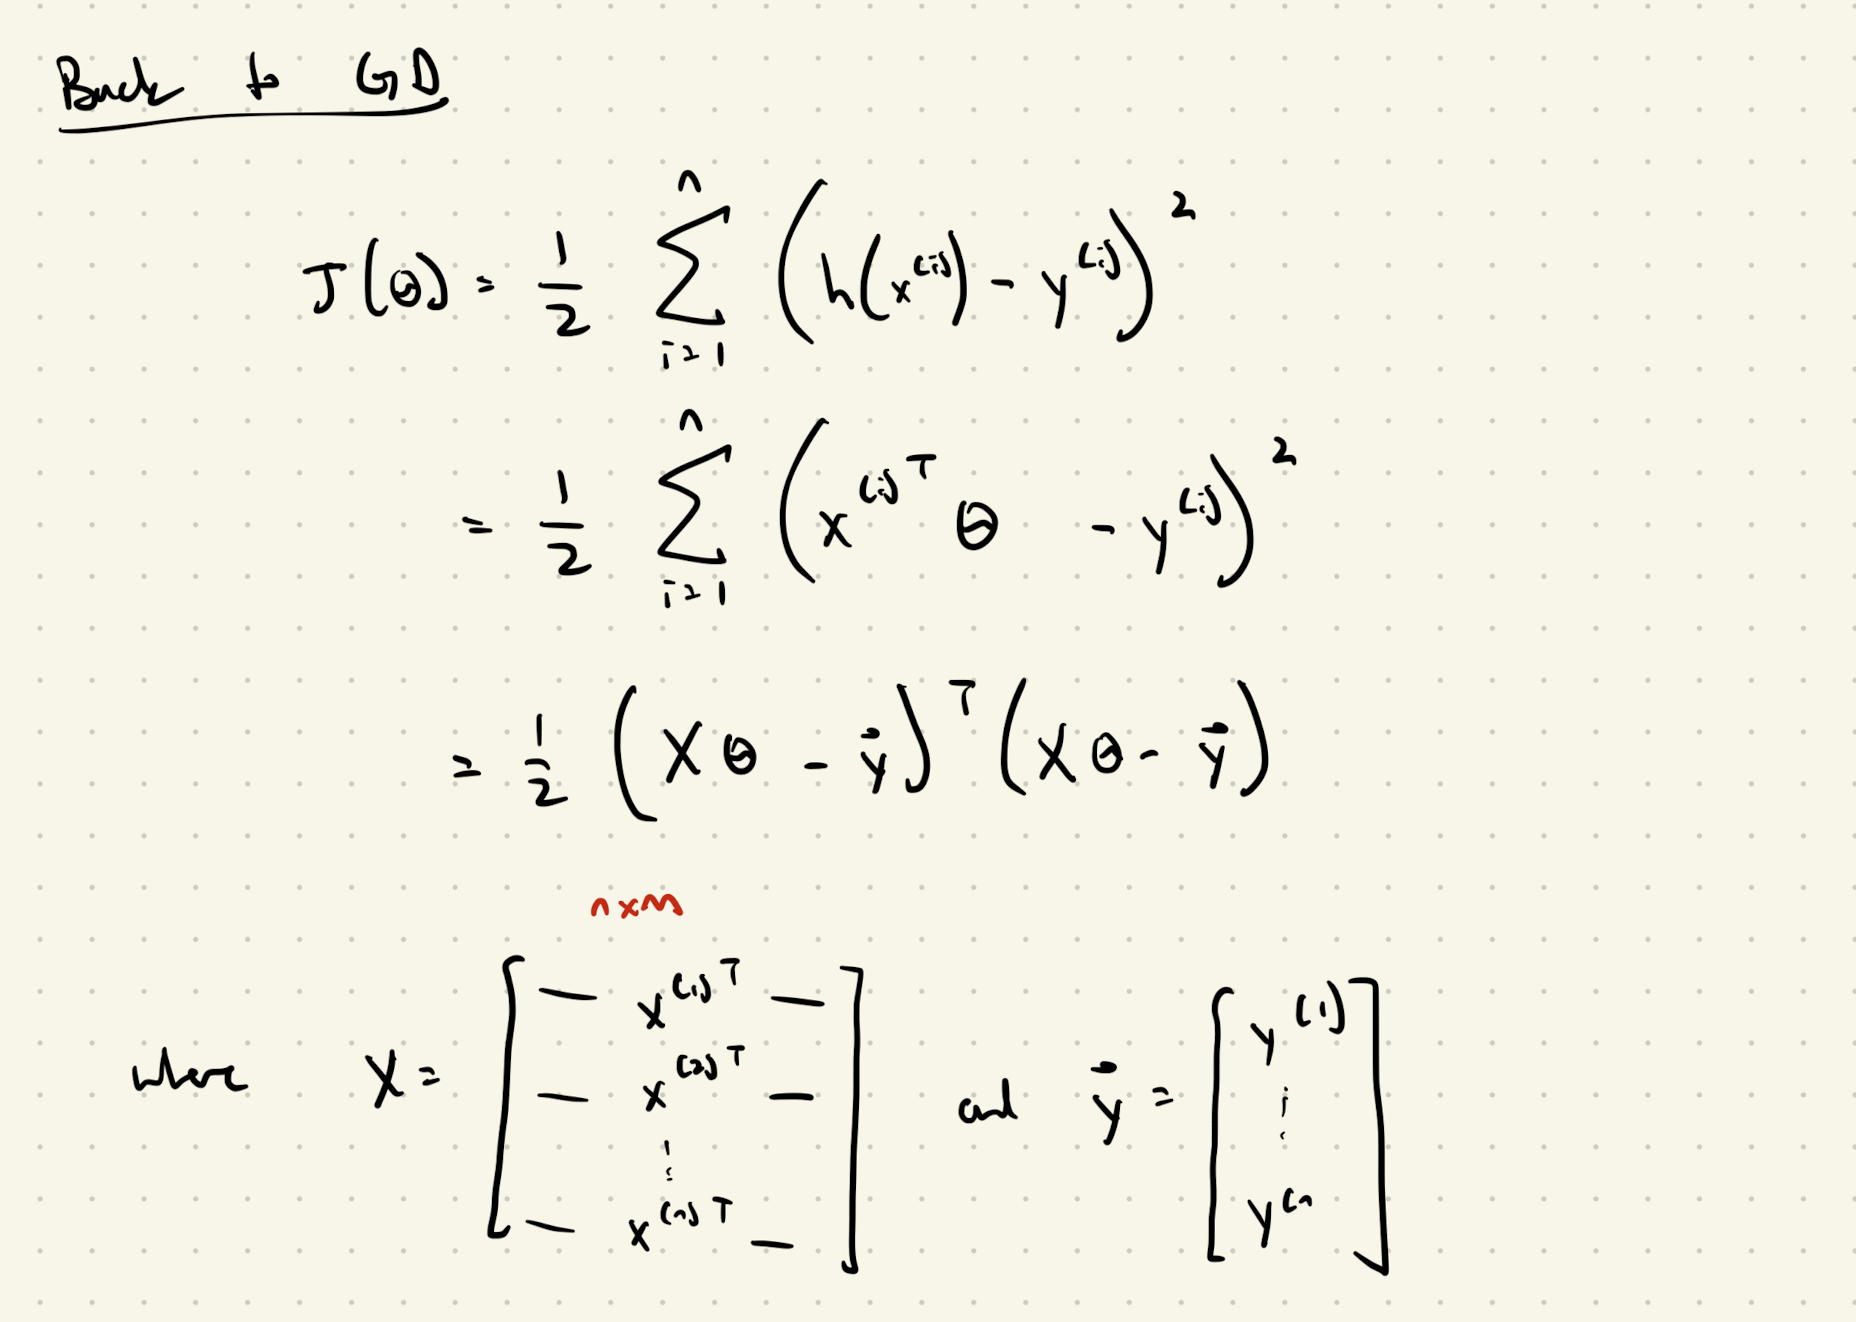 Back to GD
J(θ) = 1/2 ∑_{i=1}^{n} (h(x^{(i)}) - y^{(i)})^2
= 1/2 ∑_{i=1}^{n} (x^{(i)T} θ - y^{(i)})^2
= 1/2 (Xθ - \vec{y})^T (Xθ - \vec{y})
n×m
where X = [— x^{(1)T} — ; — x^{(2)T} — ; ⋮ ; — x^{(n)T} —] and \vec{y} = [y^{(1)} ; ⋮ ; y^{(n}]